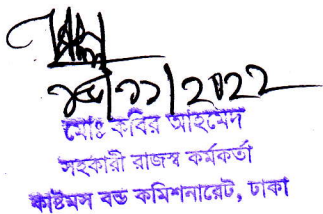 /১১/২০২২
মোঃ কবির আহমেদ
সহকারী রাজস্ব কর্মকর্তা
কাষ্টমস বন্ড কমিশনারেট, ঢাকা